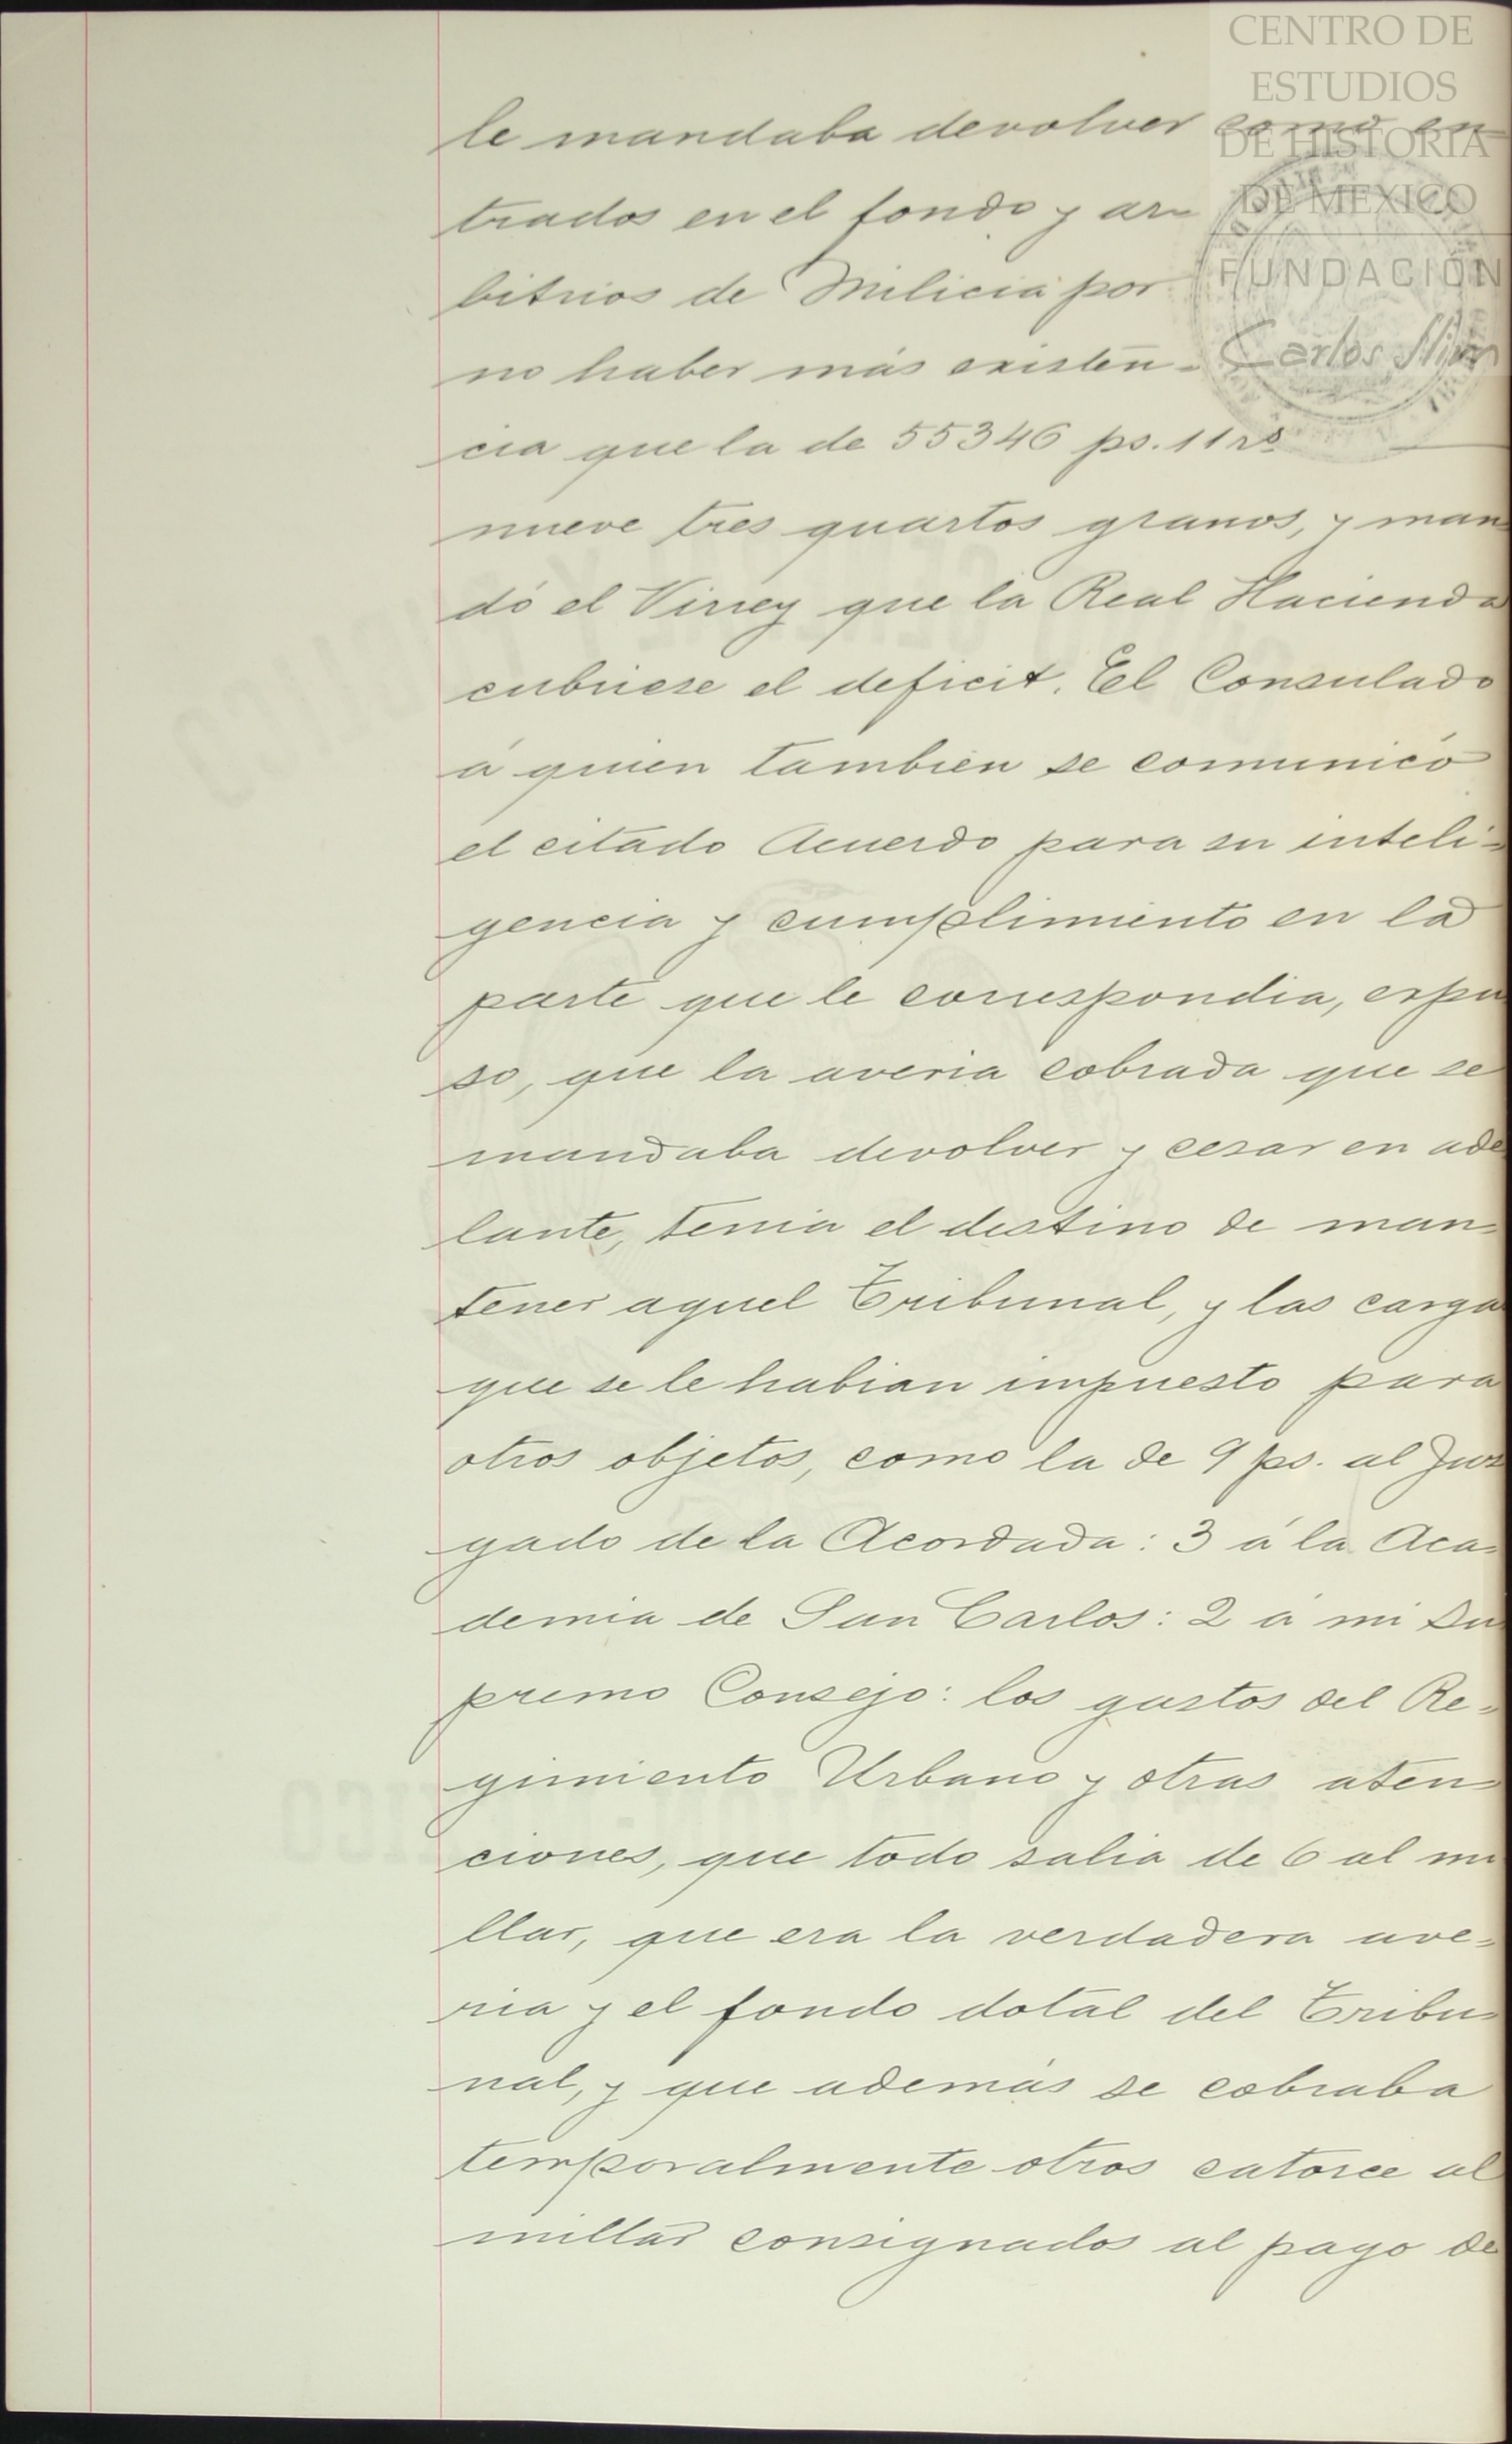 CENTRO DE
ESTUDIOS
DE HISTORIA
DE MEXICO
FUNDACIÓN
Carlos Slim
le mandaba devolver como en=
trados en el fondo y ar=
bitrios de Milicia por
no haber más existen=
cia que la de 55346 ps. 11 rs
nueve tres quartos granos, y man
dó el Virrey que la Real Hacienda
cubriese el deficit. El Consulado
á quien tambien se comunicó
el citado Acuerdo para su inteli=
gencia y cumplimiento en la
parte que le correspondia, espu
so, que la averia cobrada que se
mandaba devolver y cesar en ade
lante, tenia el destino de man=
tener aquel Tribunal, y las carga
que se le habian impuesto para
otros objetos, como la de 9 ps. al Juz
gado de la Acordada: 3 á la Aca=
demia de San Carlos: 2 á mi Su
premo Consejo: los gastos del Re=
gimiento Urbano y otras aten=
ciones, que todo salia de 6 al mi
llar, que era la verdadera ave=
ria y el fondo dotal del Tribu=
nal, y que además se cobraba
temporalmente otros catorce al
millar consignados al pago de